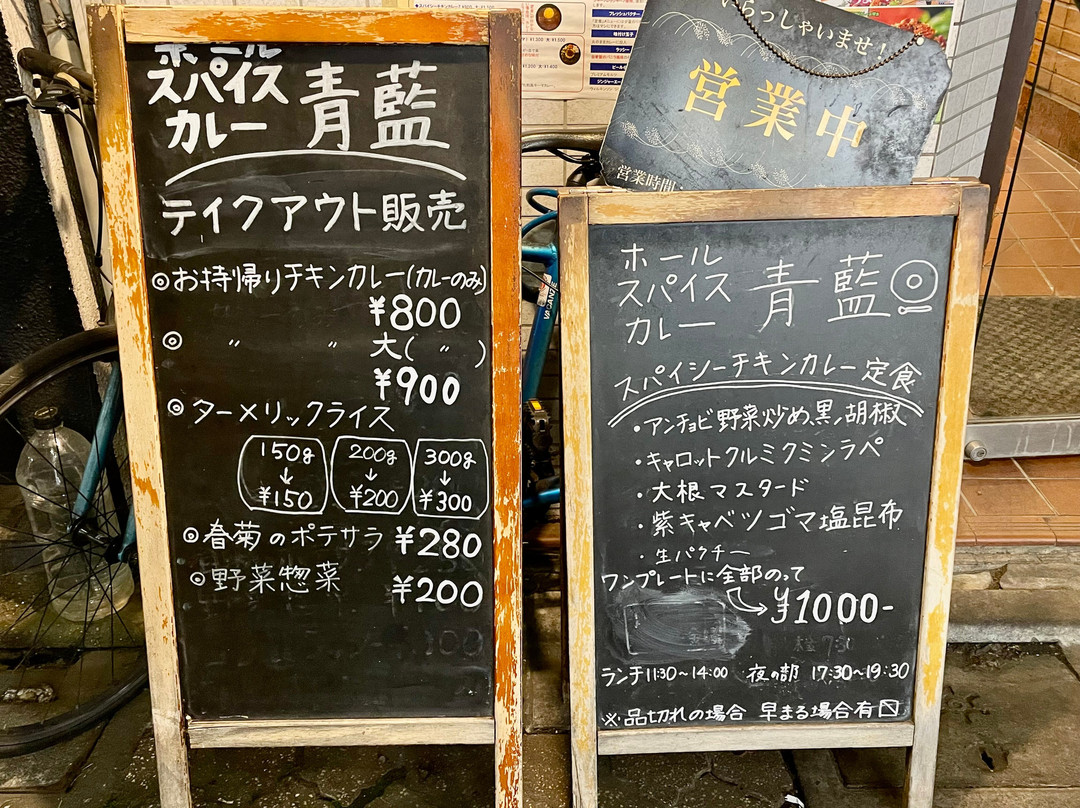 ホール
スパイス
カレー
青藍
テイクアウト販売
◎お持帰りチキンカレー(カレーのみ)
¥800
◎ 〃 〃 大( 〃 )
¥900
◎ターメリックライス
150g
↓
¥150
200g
↓
¥200
300g
↓
¥300
◎春菊のポテサラ ¥280
◎野菜惣菜 ¥200
いらっしゃいませ!
営業中
営業時間
ホール
スパイス
カレー
青藍
スパイシーチキンカレー定食
・アンチョビ野菜炒め黒胡椒
・キャロットクルミクミンラペ
・大根マスタード
・紫キャベツゴマ塩昆布
・生パクチー
ワンプレートに全部のって
¥1000-
ランチ11:30〜14:00 夜の部 17:30〜19:30
※品切れの場合 早まる場合有
フレッシュバター
味付け玉子
ラッシー